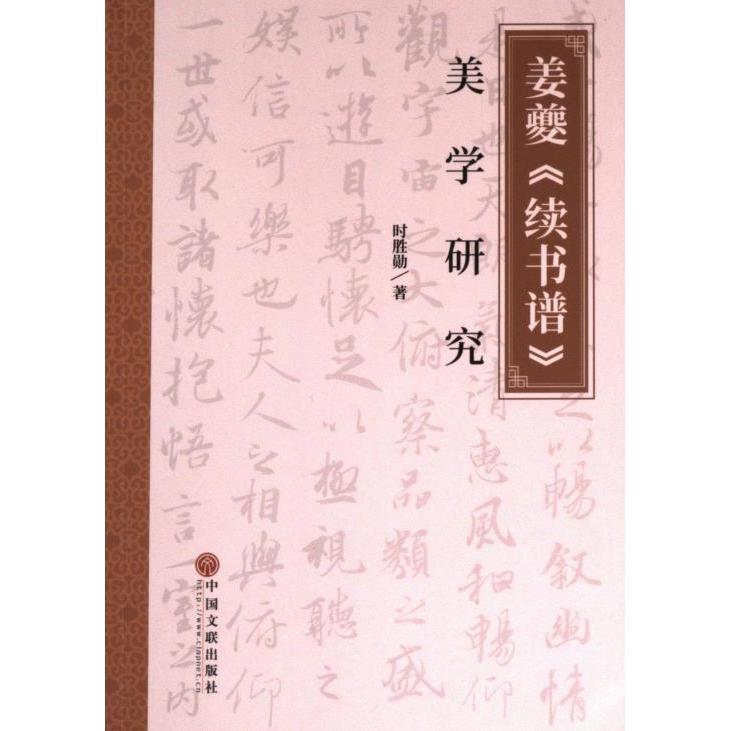 姜夔《续书谱》
美学研究
时胜勋/著
盛一觞一
是日也天朗气清惠风和畅仰
觀宇宙之大俯察品類之盛
所以遊目騁懷足以極視聽之
娱信可樂也夫人之相與俯仰
一世或取諸懷抱悟言一室之内
之以暢叙幽情
中国文联出版社
http://www.clapnet.cn